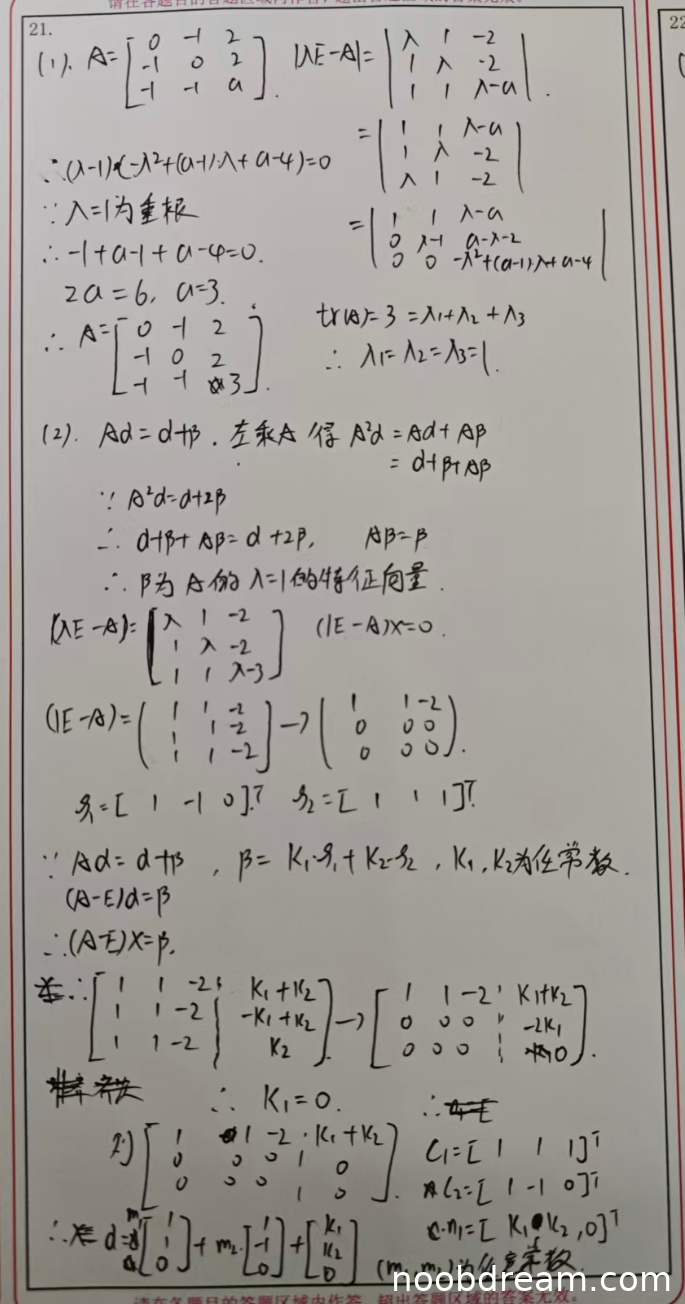 21.
22
(1). A=[0 -1 2; -1 0 2; -1 -1 a]. |λE-A|=|λ 1 -2; 1 λ -2; 1 1 λ-a|.
=|1 1 λ-a; 1 λ -2; λ 1 -2|
∴(λ-1)(-λ²+(a-1)·λ+a-4)=0
∵λ=1为重根
=|1 1 λ-a; 0 λ-1 a-λ-2; 0 0 -λ²+(a-1)·λ+a-4|
∴-1+a-1+a-4=0.
2a=6, a=3.
∴A=[0 -1 2; -1 0 2; -1 -1 3].
tr(A)=3=λ1+λ2+λ3
∴λ1=λ2=λ3=1.
(2). Aα=α+β. 左乘A得A²α=Aα+Aβ
=α+β+Aβ
∵A²α=α+2β
∴α+β+Aβ=α+2β, Aβ=β
∴β为A的λ=1的特征向量.
(λE-A)=[λ 1 -2; 1 λ -2; 1 1 λ-3] (1E-A)x=0.
(1E-A)=[1 1 -2; 1 1 -2; 1 1 -2]→(1 1 -2; 0 0 0; 0 0 0).
ξ1=[1 -1 0]T. ξ2=[1 1 1]T.
∵Aα=α+β, β=K1·ξ1+K2·ξ2, K1,K2为任常数.
(A-E)α=β
∴(A-E)x=β.
∴[1 1 -2 ¦ K1+K2; 1 1 -2 ¦ -K1+K2; 1 1 -2 ¦ K2]→[1 1 -2 ¦ K1+K2; 0 0 0 ¦ -2K1; 0 0 0 ¦ 0].
∴K1=0.
[1 1 -2 K1+K2; 0 0 0 1 0; 0 0 0 1 0].
C1=[1 1 1]T
C2=[1 -1 0]T
n1=[K1 K2, 0]T
∴α=m1[1; 1; 0]+m2·[1; -1; 0]+[K1; K2; 0]
(m1, m2)为任意常数
noobdream.com
请在各题目的答题区域内作答，超出答题区域的答案无效。